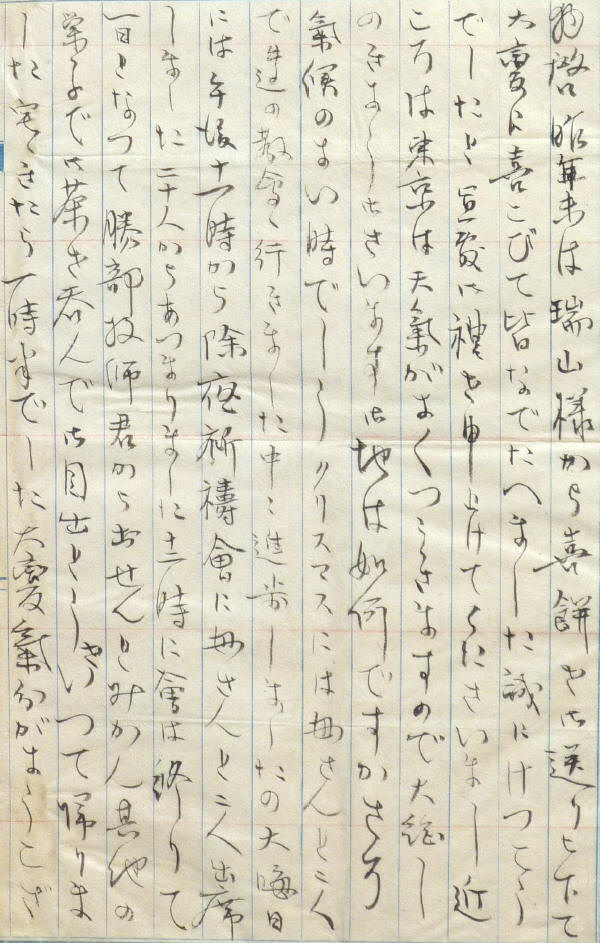 拝啓 昨年末は瑞山様から喜餅を御送り下下て
大変に喜こびて皆なでたべました誠にけつこう
でしたと宜敷御禮を申上げてくださいまし 近
ころは東京は天氣がよくつづきますので大絵し
のぎよくございます 御地は如何ですか さぞ
氣候のよい時でしよう クリスマスには母さんと二人
で の教會へ行きました中に進歩しましたの大晦日
には午後十一時から除夜祈祷會に母さんと二人出席
しました 二十人からあつまりました 十二時に會は終りて
一日となつて勝部牧師君からおせんとみかん其他の
菓子で御茶を呑んで御目出とうをいつて帰りま
した 宅へきたら一時半でした 大変氣分がようござ